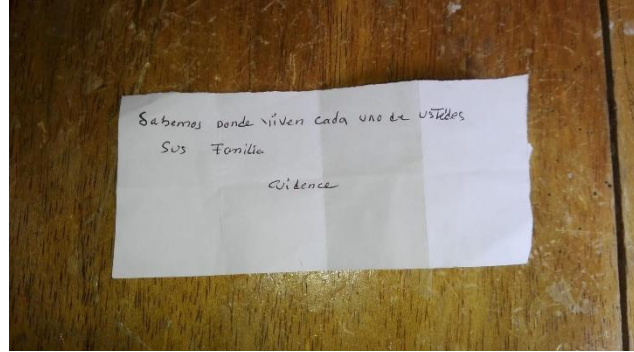 Sabemos Donde viven cada uno de ustedes
Sus Familia
Cuidence